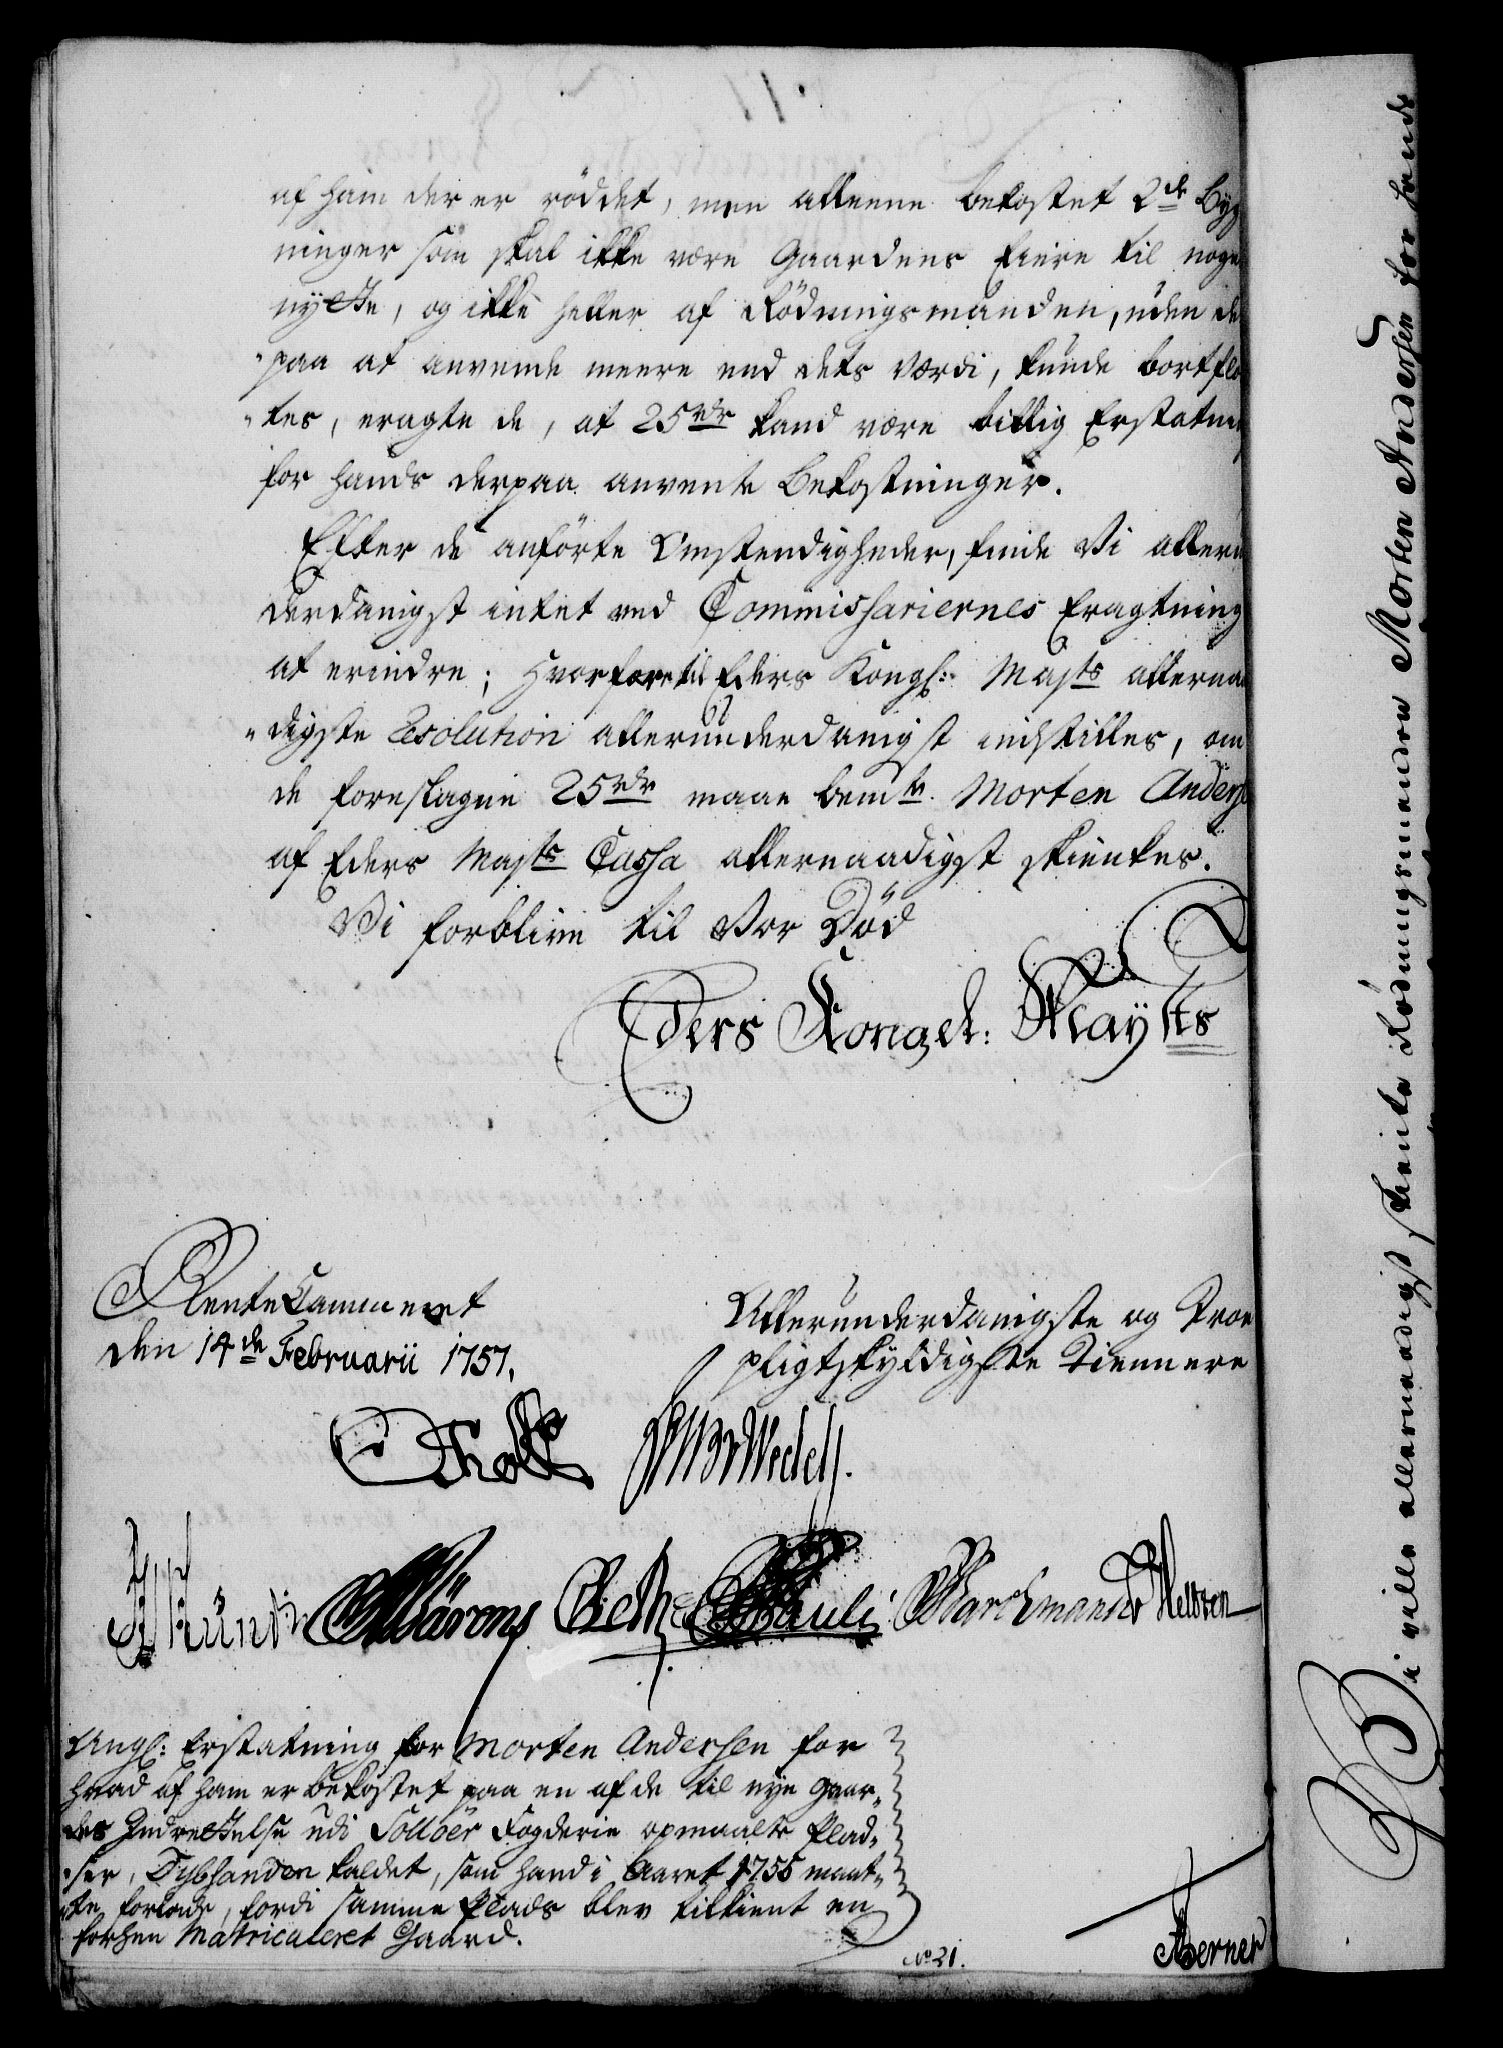 af ham der er röddet, men alleene bekostet 2de Byg
ninger som skal ikke være Gaardens Eiere til noge
nytte, og ikke heller af Rödningsmanden, uden der
paa at anvende meere end dets Værdi, kunde bortfløt
tes, eragte de, at 25rdr kand være billig Erstatning
for hands derpaa anvente Bekostninger.
Efter de anförte Omstendigheder, finde Vi allerun
derdanigst intet ved Commissariernes Eragtning
at erindre; Hvorfore til Eders Kongl: Majts allernaa
digste Resolution allerunderdanigst indstilles, om
de foreslagne 25rdr maae bemte Morten Anderse
af Eders Majts Cassa allernaadigst skienkes.
Vi forblive til Vor Död
Eders Kongel: Mayts
RenteCammeret
den 14de Februarii 1757.
Allerunderdanigste og Troe
pligtskyldigste Tiennere
Tholt Wedell.
Bärens Pauli Marchmann
Angl: Erstatning for Morten Andersen for
hvad af ham er bekostet paa en af de til nye Gaar-
des Indrettelse udi Solloer Fogderie opmaalte Plad-
ser, kaldet, som hand i Aaret 1755 maat-
te forlade, fordi samme Plads blev tilkient en
forhen Matriculeret Gaard.
No 21.
Berner
Vi ville allernaadigst skienke Rödningsmanden Morten Andersen for hands